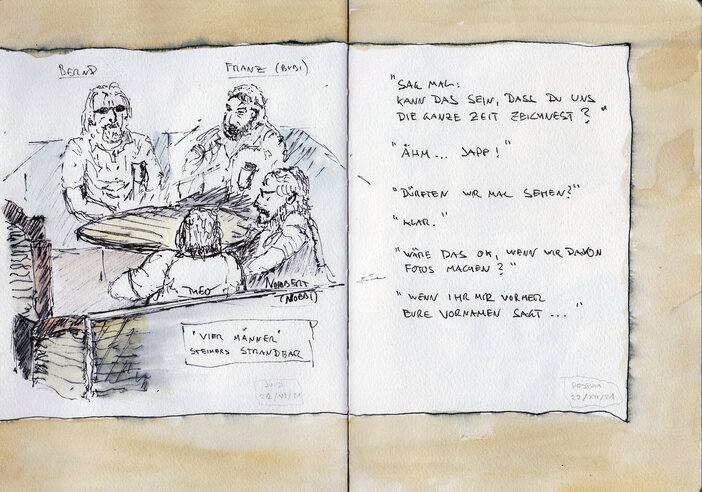 BERND
FRANZ (BUBI)
THEO
NORBERT
(NOBBI)
"VIER MÄNNER"
STEINERS STRANDBAR
"SAG MAL:
KANN DAS SEIN, DASS DU UNS
DIE GANZE ZEIT ZEICHNEST?"
"ÄHM... JAPP!"
"DÜRFTEN WIR MAL SEHEN?"
"KLAR."
"WÄRE DAS OK, WENN WIR DAVON
FOTOS MACHEN?"
"WENN IHR MIR VORHER
EURE VORNAMEN SAGT..."